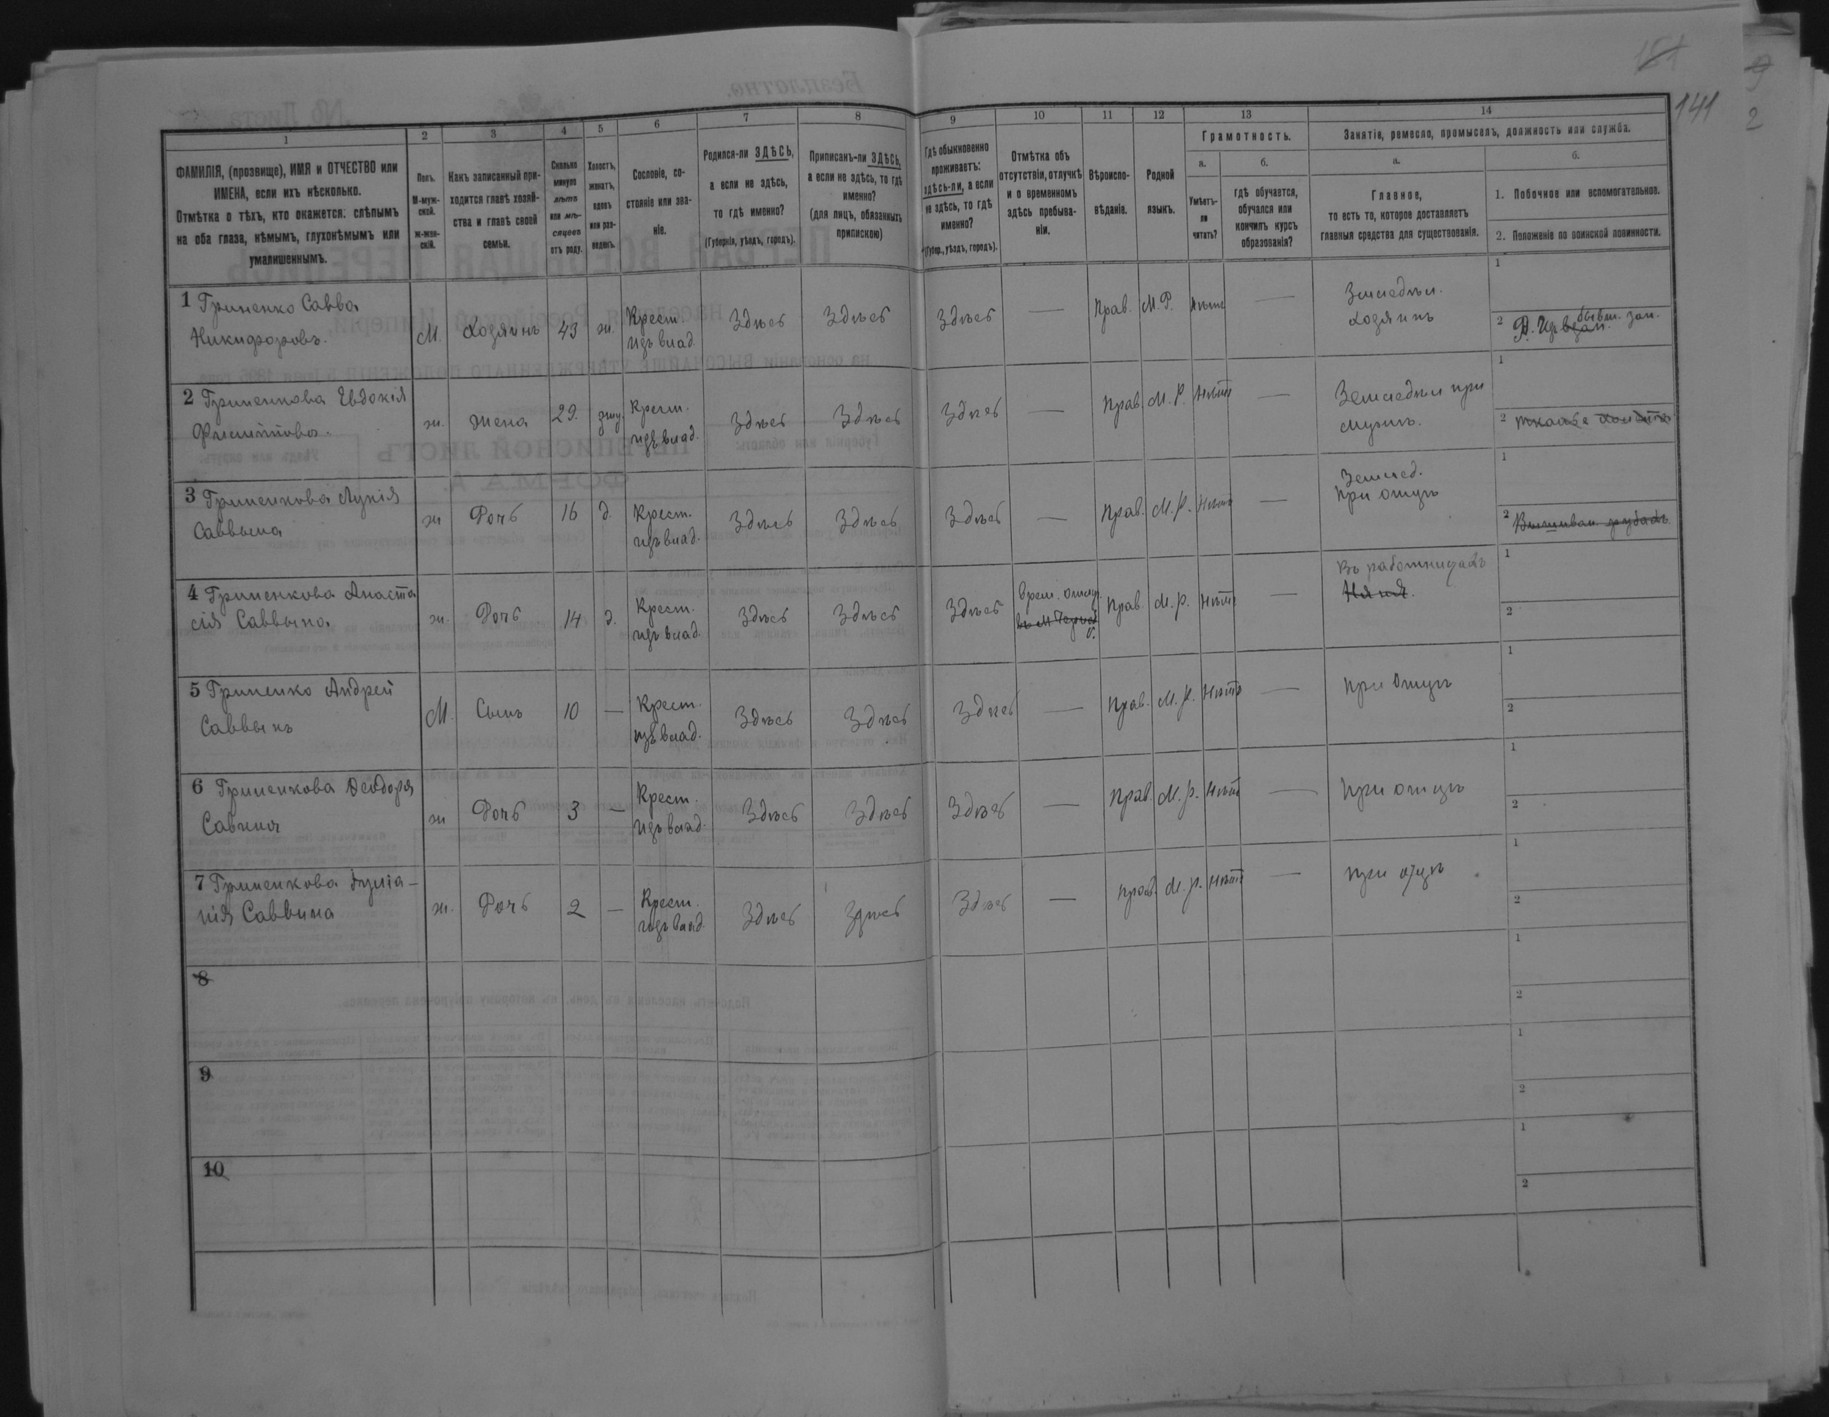 151
141
9
2
1
2
3
4
5
6
7
8
9
10
11
12
13
14
ФАМИЛІЯ, (прозвище), ИМЯ и ОТЧЕСТВО или
ИМЕНА, если ихъ нѣсколько.
Отмѣтка о тѣхъ, кто окажется: слѣпымъ
на оба глаза, нѣмымъ, глухонѣмымъ или
умалишеннымъ.
Полъ.
М-муж-
ской.
ж-жен-
скій.
Какъ записанный при-
ходится главѣ хозяй-
ства и главѣ своей
семьи.
Сколько
минуло
лѣтъ
или мѣ-
сяцевъ
отъ роду.
Холостъ,
женатъ,
вдовъ
или раз-
веденъ.
Сословіе, со-
стояніе или зва-
ніе.
Родился-ли ЗДѢСЬ,
а если не здѣсь,
то гдѣ именно?
(Губернія, уѣздъ, городъ).
Приписанъ-ли ЗДѢСЬ,
а если не здѣсь, то гдѣ
именно?
(для лицъ, обязанныхъ
припискою)
Гдѣ обыкновенно
проживаетъ:
здѣсь-ли, а если
не здѣсь, то гдѣ
именно?
(Губер., уѣздъ, городъ).
Отмѣтка объ
отсутствіи, отлучкѣ
и о временномъ
здѣсь пребыва-
ніи.
Вѣроиспо-
вѣданіе.
Родной
языкъ.
Грамотность.
а.
Умѣетъ-
ли
читать?
б.
гдѣ обучается,
обучался или
кончилъ курсъ
образованія?
Занятіе, ремесло, промыселъ, должность или служба.
а.
Главное,
то есть то, которое доставляетъ
главныя средства для существованія.
б.
1. Побочное или вспомогательное.
2. Положеніе по воинской повинности.
1 Гриненко Савва
Никифоровъ.
М.
Хозяинъ
43
ж.
Крест.
изъ влад.
Здѣсь
Здѣсь
Здѣсь
—
Прав.
М. Р.
—
Земледѣл.
Хозяинъ
1
2
2 Гриненкова Евдокія
ж.
Жена
29
Крест.
изъ влад.
Здѣсь
Здѣсь
Здѣсь
—
Прав.
М. Р.
Нѣтъ
—
Земледѣл при
мужѣ.
1
2
3 Гриненкова Лукія
Саввина
ж
Дочь
16
д.
Крест.
изъ влад.
Здѣсь
Здѣсь
Здѣсь
—
Прав.
М. р.
Нѣтъ
—
Землед.
При отцѣ
1
2
4 Гриненкова Анаста
сія Саввина.
ж.
Дочь
14
д.
Крест.
изъ влад
Здѣсь
Здѣсь
Здѣсь
Врем. отлуч.
Прав.
М. р.
Нѣтъ
—
Въ работницахъ
Няня.
1
2
5 Гриненко Андрей
Саввинъ
М.
Сынъ
10
—
Крест.
изъ влад.
Здѣсь
Здѣсь
Здѣсь
—
Прав.
М. р.
Нѣтъ
—
При Отцѣ
1
2
6 Гриненкова Ѳеодора
Савина
ж
Дочь
3
—
Крест.
изъ влад.
Здѣсь
Здѣсь
Здѣсь
—
Прав.
М. р.
Нѣтъ
—
При отцѣ
1
2
7 Гриненкова Іуліа-
нія Саввина
ж.
Дочь
2
—
Крест.
изъ влад.
Здѣсь
Здѣсь
Здѣсь
—
Прав.
М. р.
Нѣтъ
—
при отцѣ
1
2
8
1
2
9
1
2
10
1
2